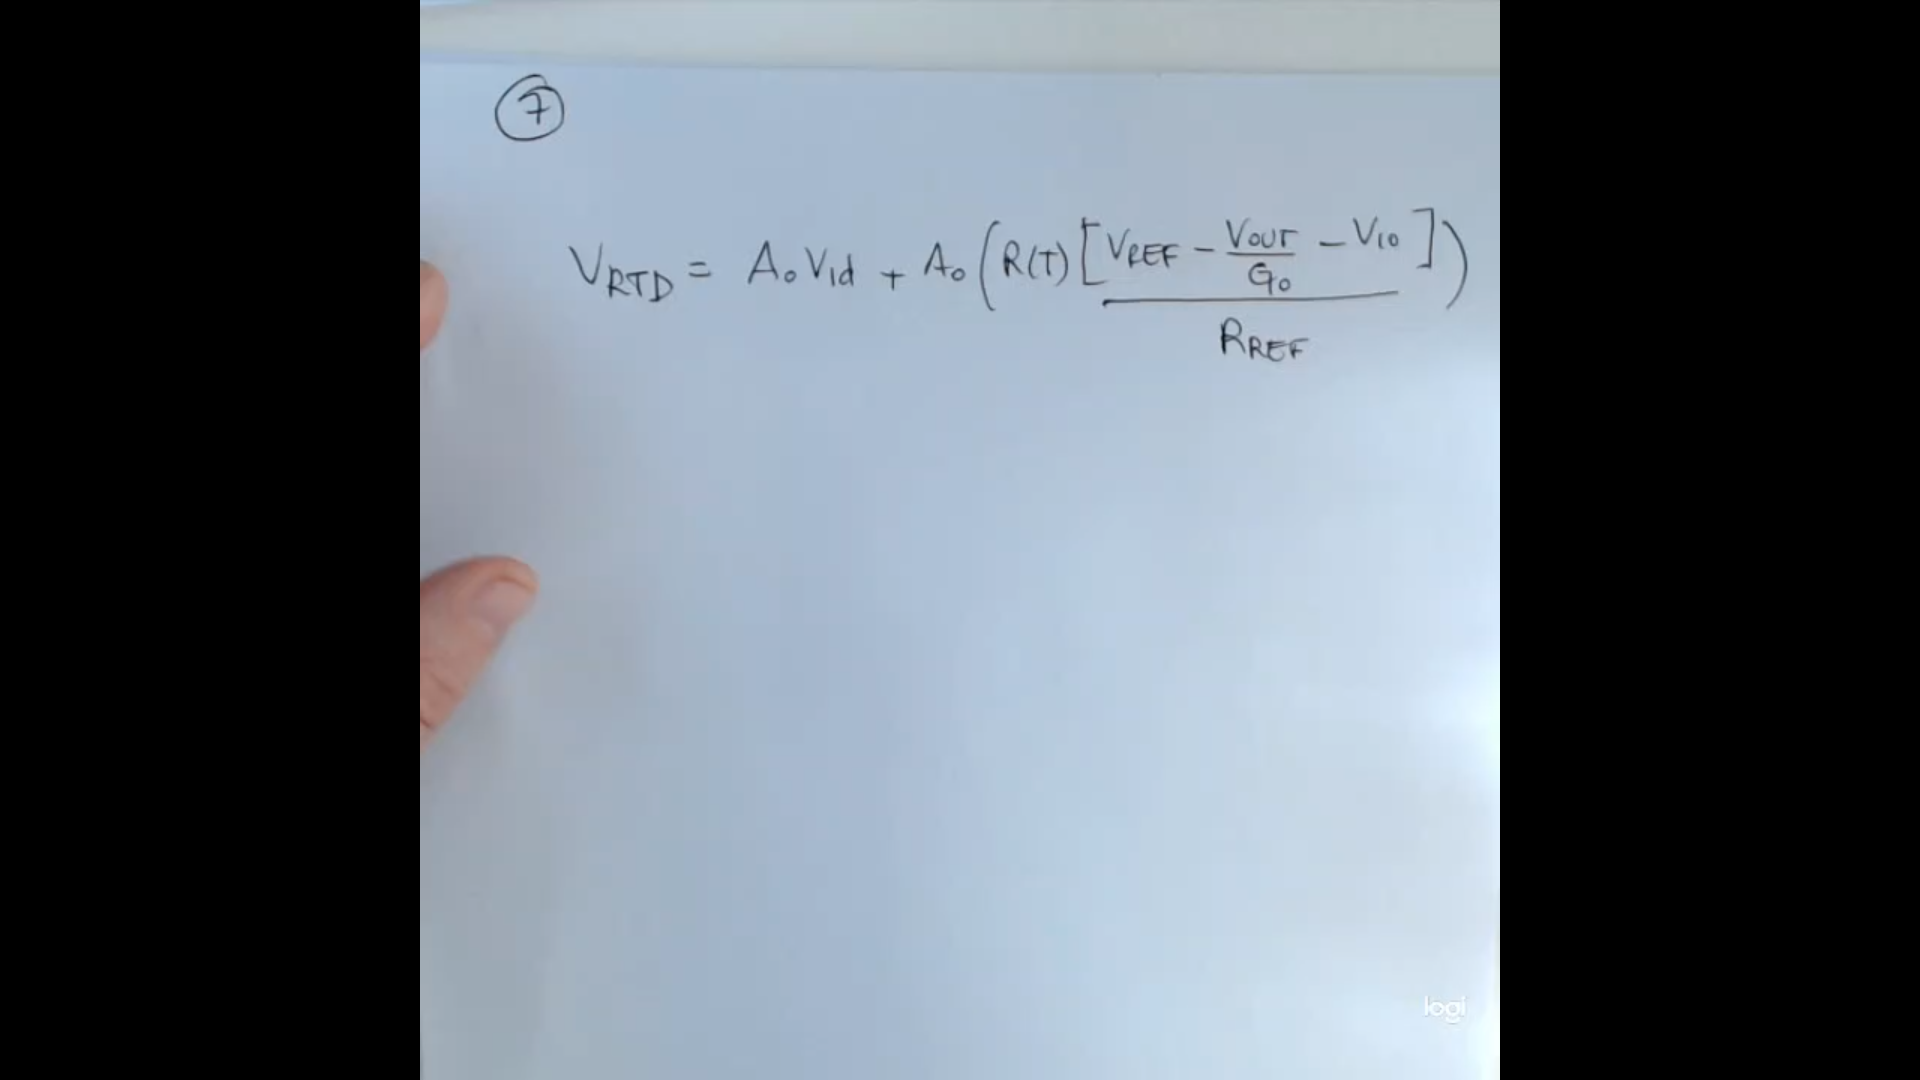 7
V_RTD = A₀V_id + A₀(R(T)[V_REF - V_OUT/G₀ - V_io]/R_REF)
logi